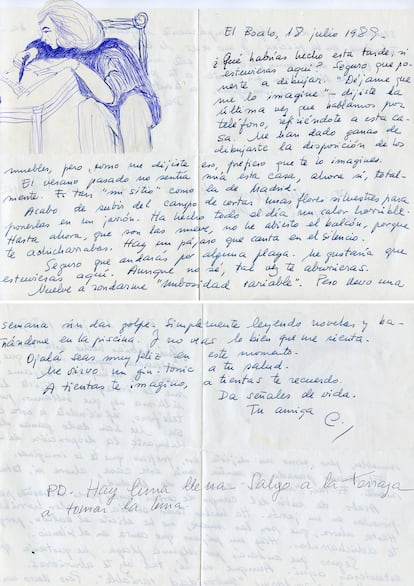 El Boalo, 18 julio 1989.
¿Qué habrías hecho esta tarde, si
estuvieras aquí? Seguro que po-
nerte a dibujar. "Déjame que
me lo imagine" - dijiste la
última vez que hablamos por
teléfono, refiriéndote a esta ca-
sa. Me han dado ganas de
dibujarte la disposición de los
muebles, pero, como me dijiste eso, prefiero que te lo imagines.
El verano pasado no sentía mía esta casa, ahora sí, total-
mente. Es tan "mi sitio" como la de Madrid.
Acabo de subir del campo de cortar unas flores silvestres para
ponerlas en un jarrón. Ha hecho todo el día un calor horrible.
Hasta ahora, que son las nueve, no he abierto el balcón, porque
te achicharrabas. Hay un pájaro que canta en el silencio.
Seguro que andarás por alguna playa. Me gustaría que
estuvieras aquí. Aunque no sé, tal vez te aburrieras.
Vuelve a rondarme "Nubosidad variable". Pero llevo una
semana sin dar golpe. Simplemente leyendo novelas y ba-
ñándome en la piscina. Y no veas lo bien que me sienta.
Ojalá seas muy feliz en este momento.
Me sirvo un gin-tonic a tu salud.
A tientas te imagino, a tientas te recuerdo.
Da señales de vida.
Tu amiga C.
P.D. Hay luna llena. Salgo a la terraza
a tomar la luna